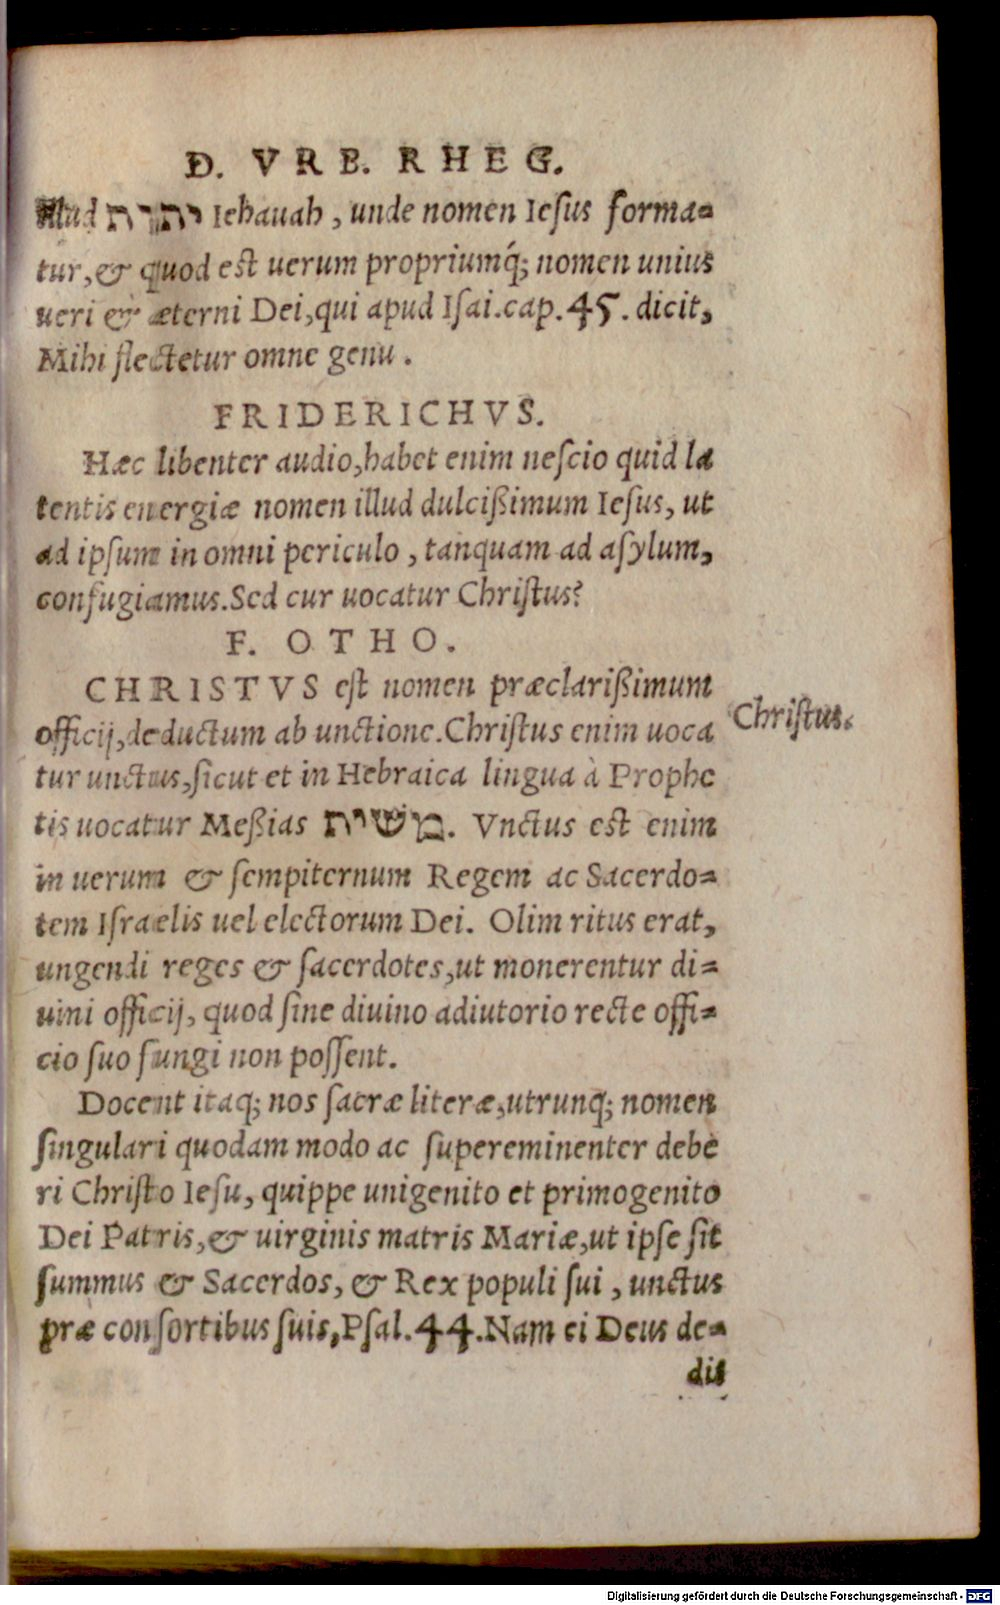 D. VRB. RHEG.
illud יהוה Iehauah, unde nomen Iesus forma=
tur, & quod est uerum propriumq́; nomen unius
ueri & æterni Dei, qui apud Isai. cap. 45. dicit,
Mihi flectetur omne genu.
FRIDERICHVS.
Hæc libenter audio, habet enim nescio quid la
tentis energiæ nomen illud dulcißimum Iesus, ut
ad ipsum in omni periculo, tanquam ad asylum,
confugiamus. Sed cur uocatur Christus?
F. OTHO.
CHRISTVS est nomen præclarißimum
officij, deductum ab unctione. Christus enim uoca
Christus.
tur unctus, sicut et in Hebraica lingua à Prophe
tis uocatur Meßias משיח. Vnctus est enim
in uerum & sempiternum Regem ac Sacerdo=
tem Israelis uel electorum Dei. Olim ritus erat,
ungendi reges & sacerdotes, ut monerentur di=
uini officij, quod sine diuino adiutorio recte offi=
cio suo fungi non possent.
Docent itaq; nos sacræ literæ, utrunq; nomen
singulari quodam modo ac supereminenter debe
ri Christo Iesu, quippe unigenito et primogenito
Dei Patris, & uirginis matris Mariæ, ut ipse sit
summus & Sacerdos, & Rex populi sui, unctus
præ consortibus suis, Psal. 44. Nam ei Deus de=
dit
Digitalisierung gefördert durch die Deutsche Forschungsgemeinschaft - DFG